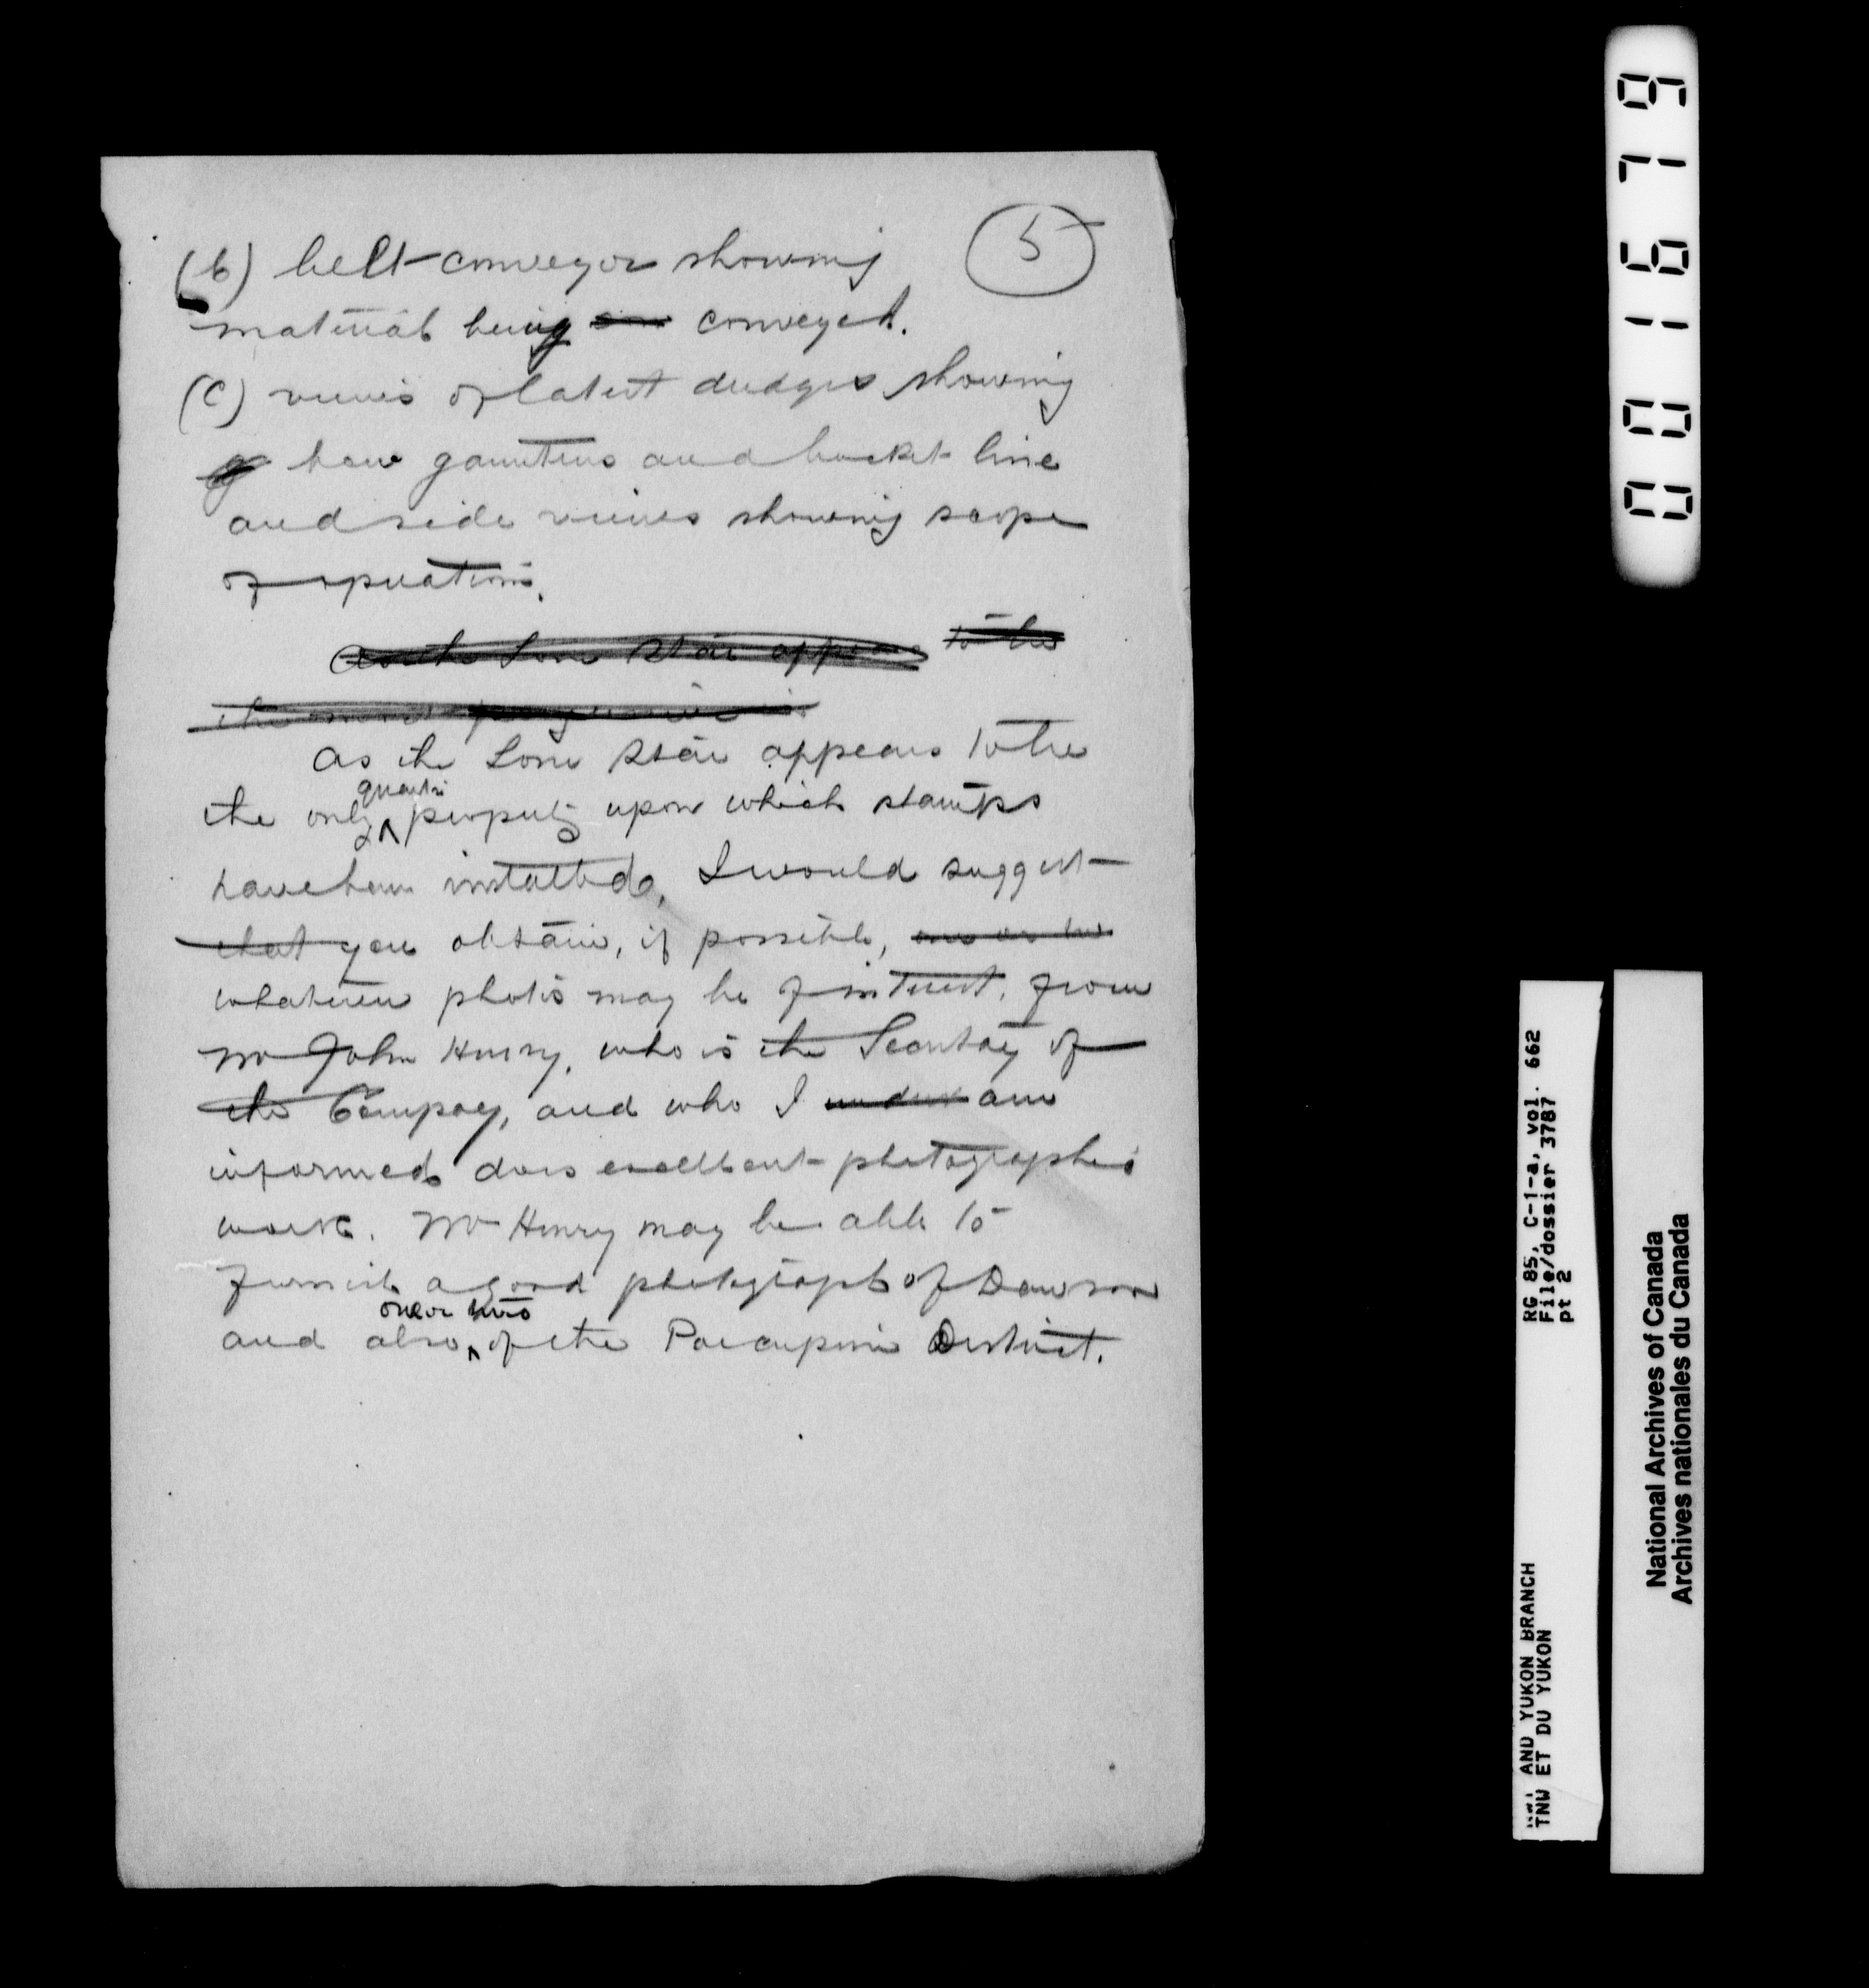 5
(b) belt conveyor showing
material being conveyed.
(c) views of latest dredges showing
bow gauntries and bucket line
and side views showing scope
of operations.
As the Lone Star appears to be
the Lone Star appears to be
the most progressive
As the Lone Star appears to be
quartz
the only property upon which stamps
have been installed, I would suggest
that you obtain, if possible, one or two
whatever photos may be of interest, from
Mr John Henry, who is the Secretary of
the Company, and who I am
informed does excellent photographic
work. Mr Henry may be able to
furnish a good photograph of Dawson
one or two
and also of the Porcupine District.
001679
RG 85, C-1-a, vol. 662
File/dossier 3787
pt 2
NWT AND YUKON BRANCH
TNW ET DU YUKON
National Archives of Canada
Archives nationales du Canada